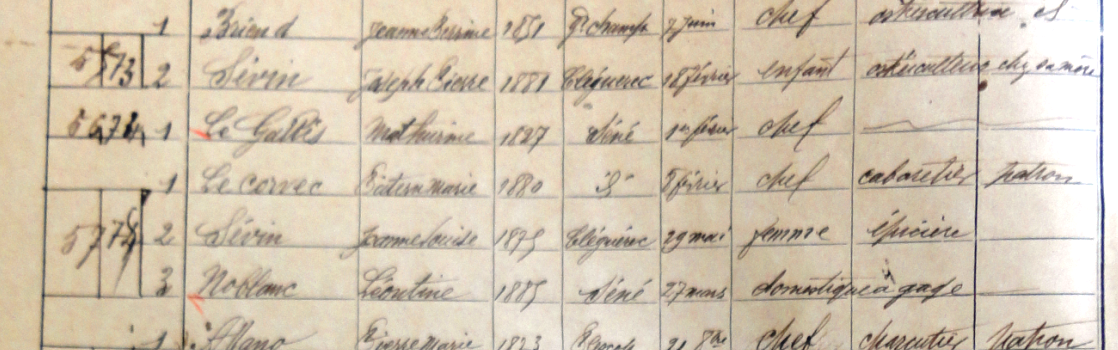 1 Briend Jeanne Perrine 1851 Gd champ 7 juin chef ostréiculteur
2 Sévin Joseph Pierre 1881 Cléguerec 18 février enfant ostréiculteur chez sa mère
1 Le Gallès Mathurine 1827 Séné 1er février chef
1 Le corvec Pierre Marie 1880 id 8 février chef cabaretier patron
2 Sévin Jeanne Louise 1875 Cléguérec 29 mai femme épicière
3 Noblanc Léontine 1885 Séné 27 mars domestique à gage
1 Allano Pierre Marie 1823 21 7bre chef charpentier patron